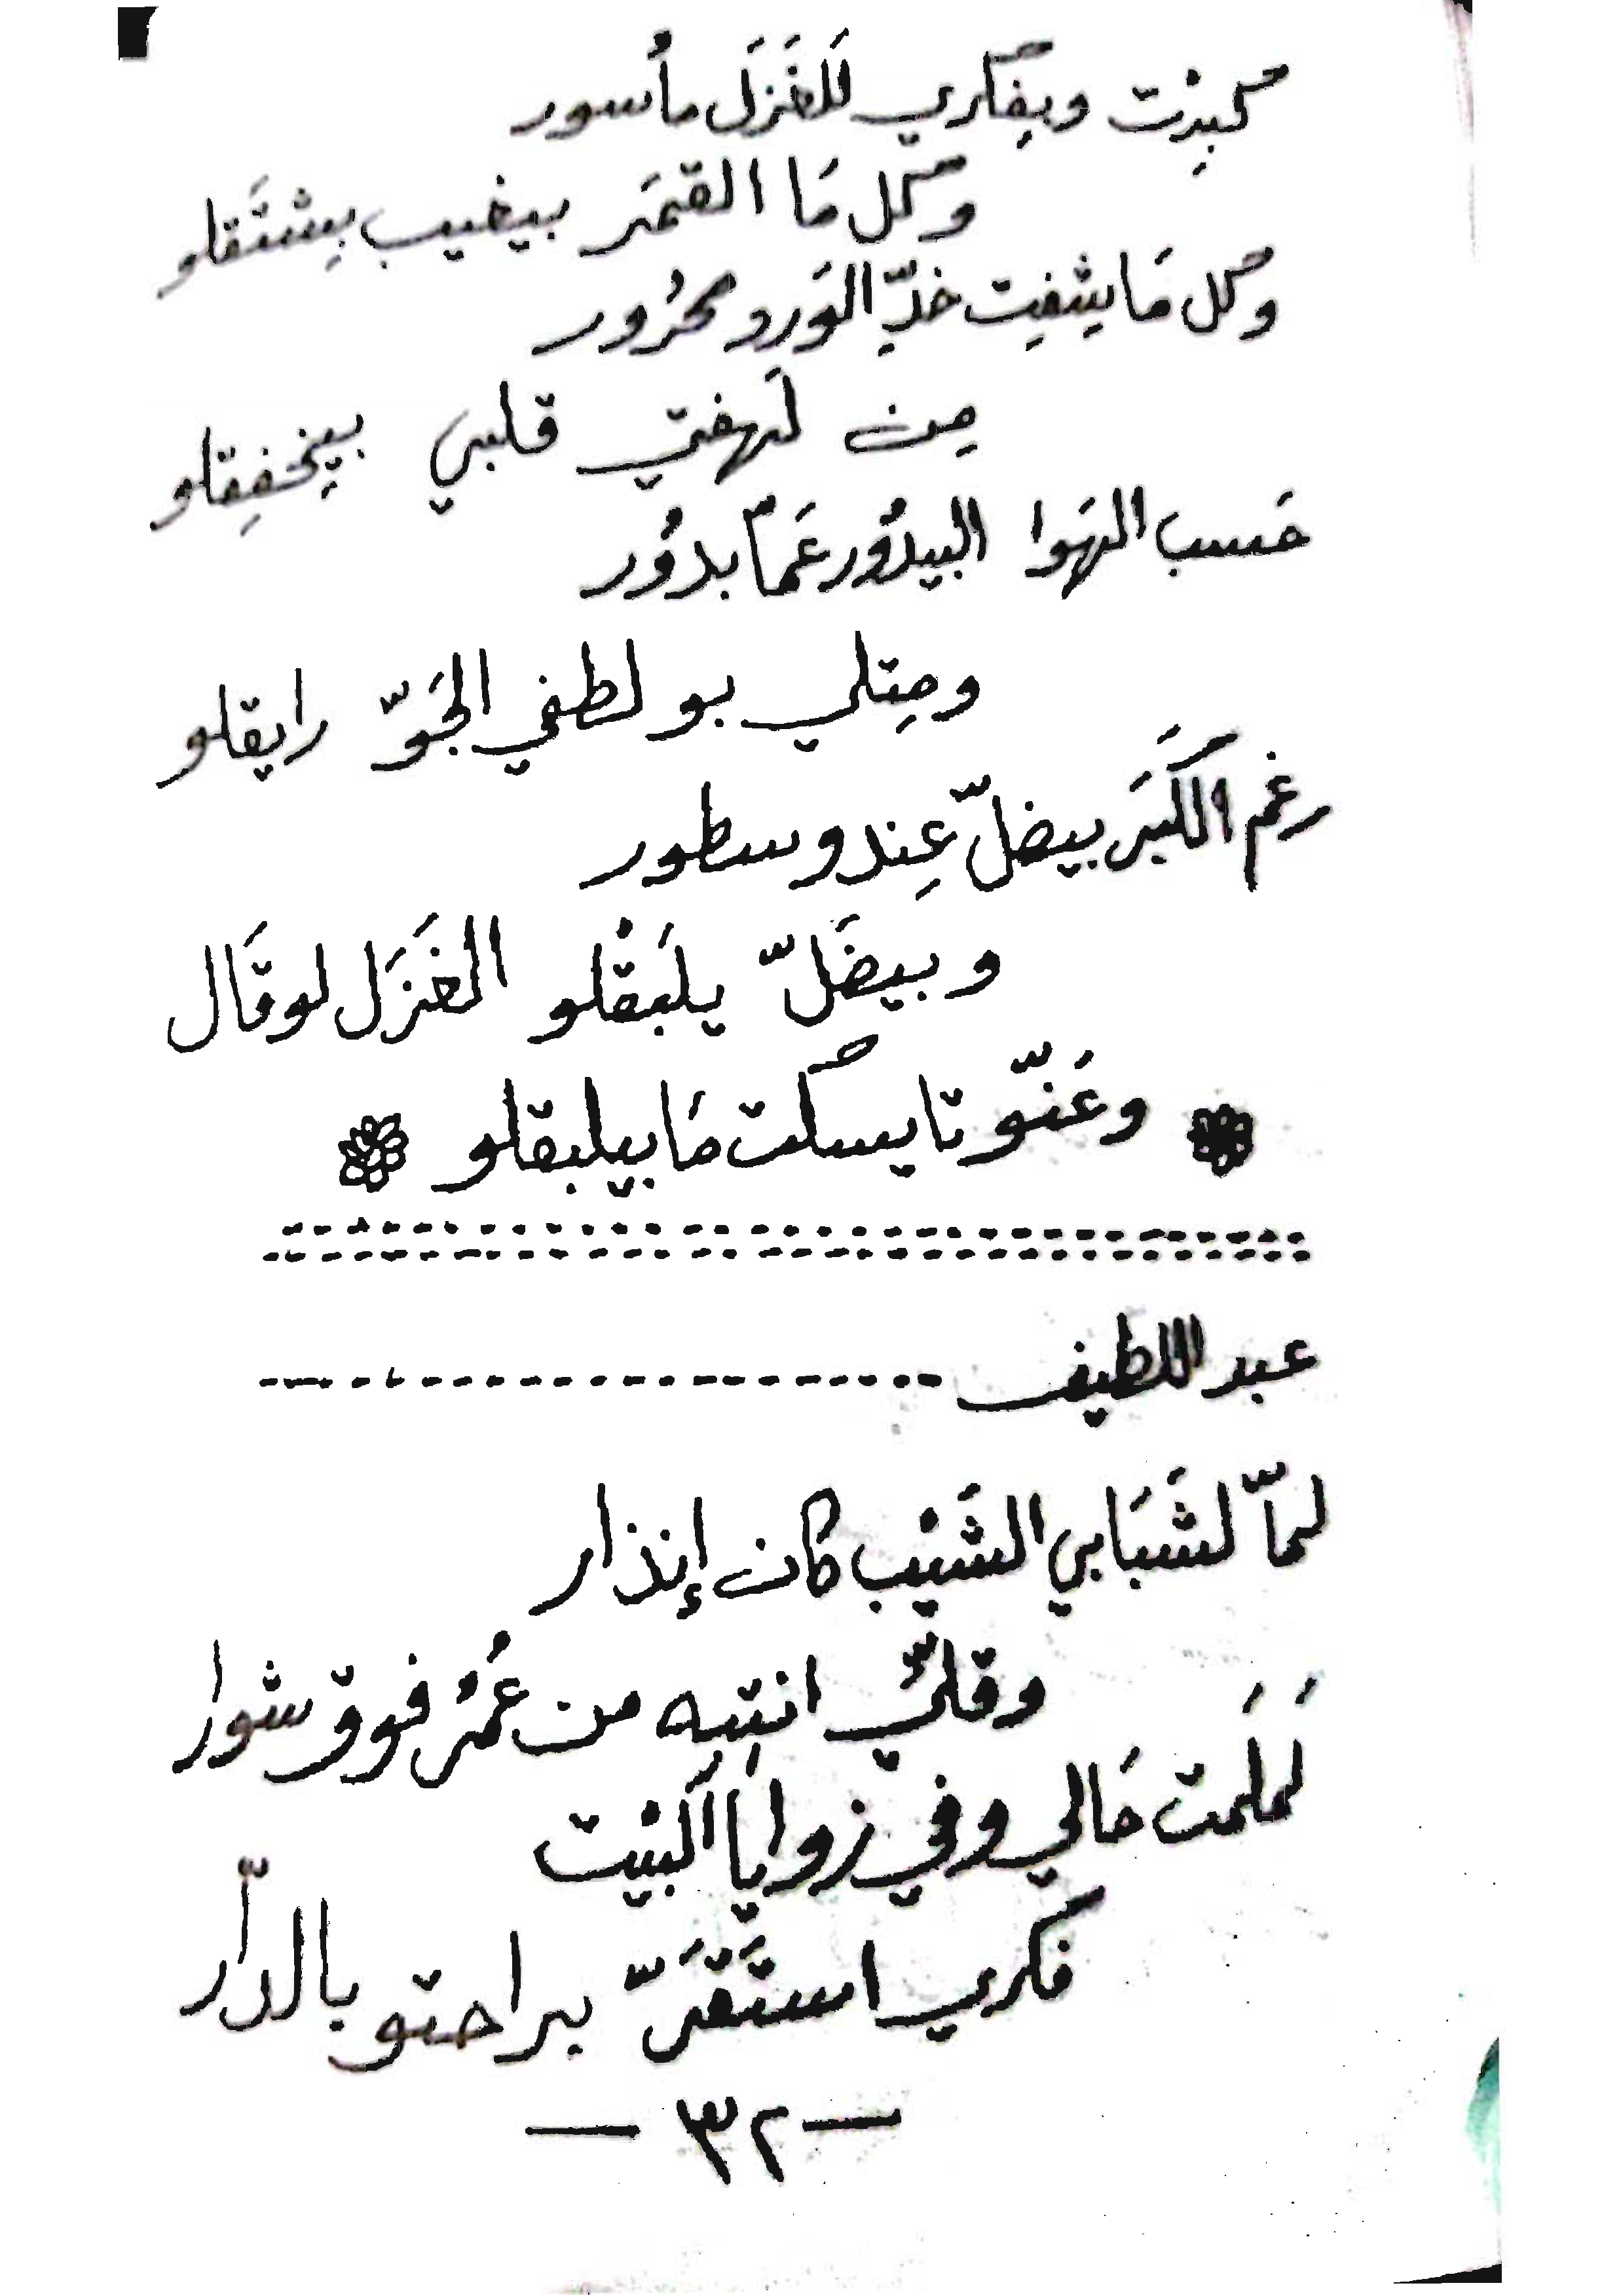 كبرت وبفكري للغَزَل مأسور
وكل مَا القمَر بيغيب بِشتَقلو
وكل مَا بِشفِت خدِّ الوَرد محرُور
مِن لَهفتي قلبي بيِخفِقلو
حَسب الهَوا البيدوُر عَمّا بدوُر
ومِتلي بو لطفي الجَوّ رايقلو
رغم الكَبَر بيضلّ عِندو سطور
وبيضَلّ يلبَقْلو الغَزَل لو قَال
وعَنّو تا يسكت مَا بيلبقلو
عبد اللطيف
لمّا لشَبَابي الشَيْب كان إنذار
وقلّي انتبه من عُمْر فوق شوار
لَملَمت حَالي وفي زوايَا البَيْت
فكري استَقَرّ براحتو بالدّار
- ٣٢ -